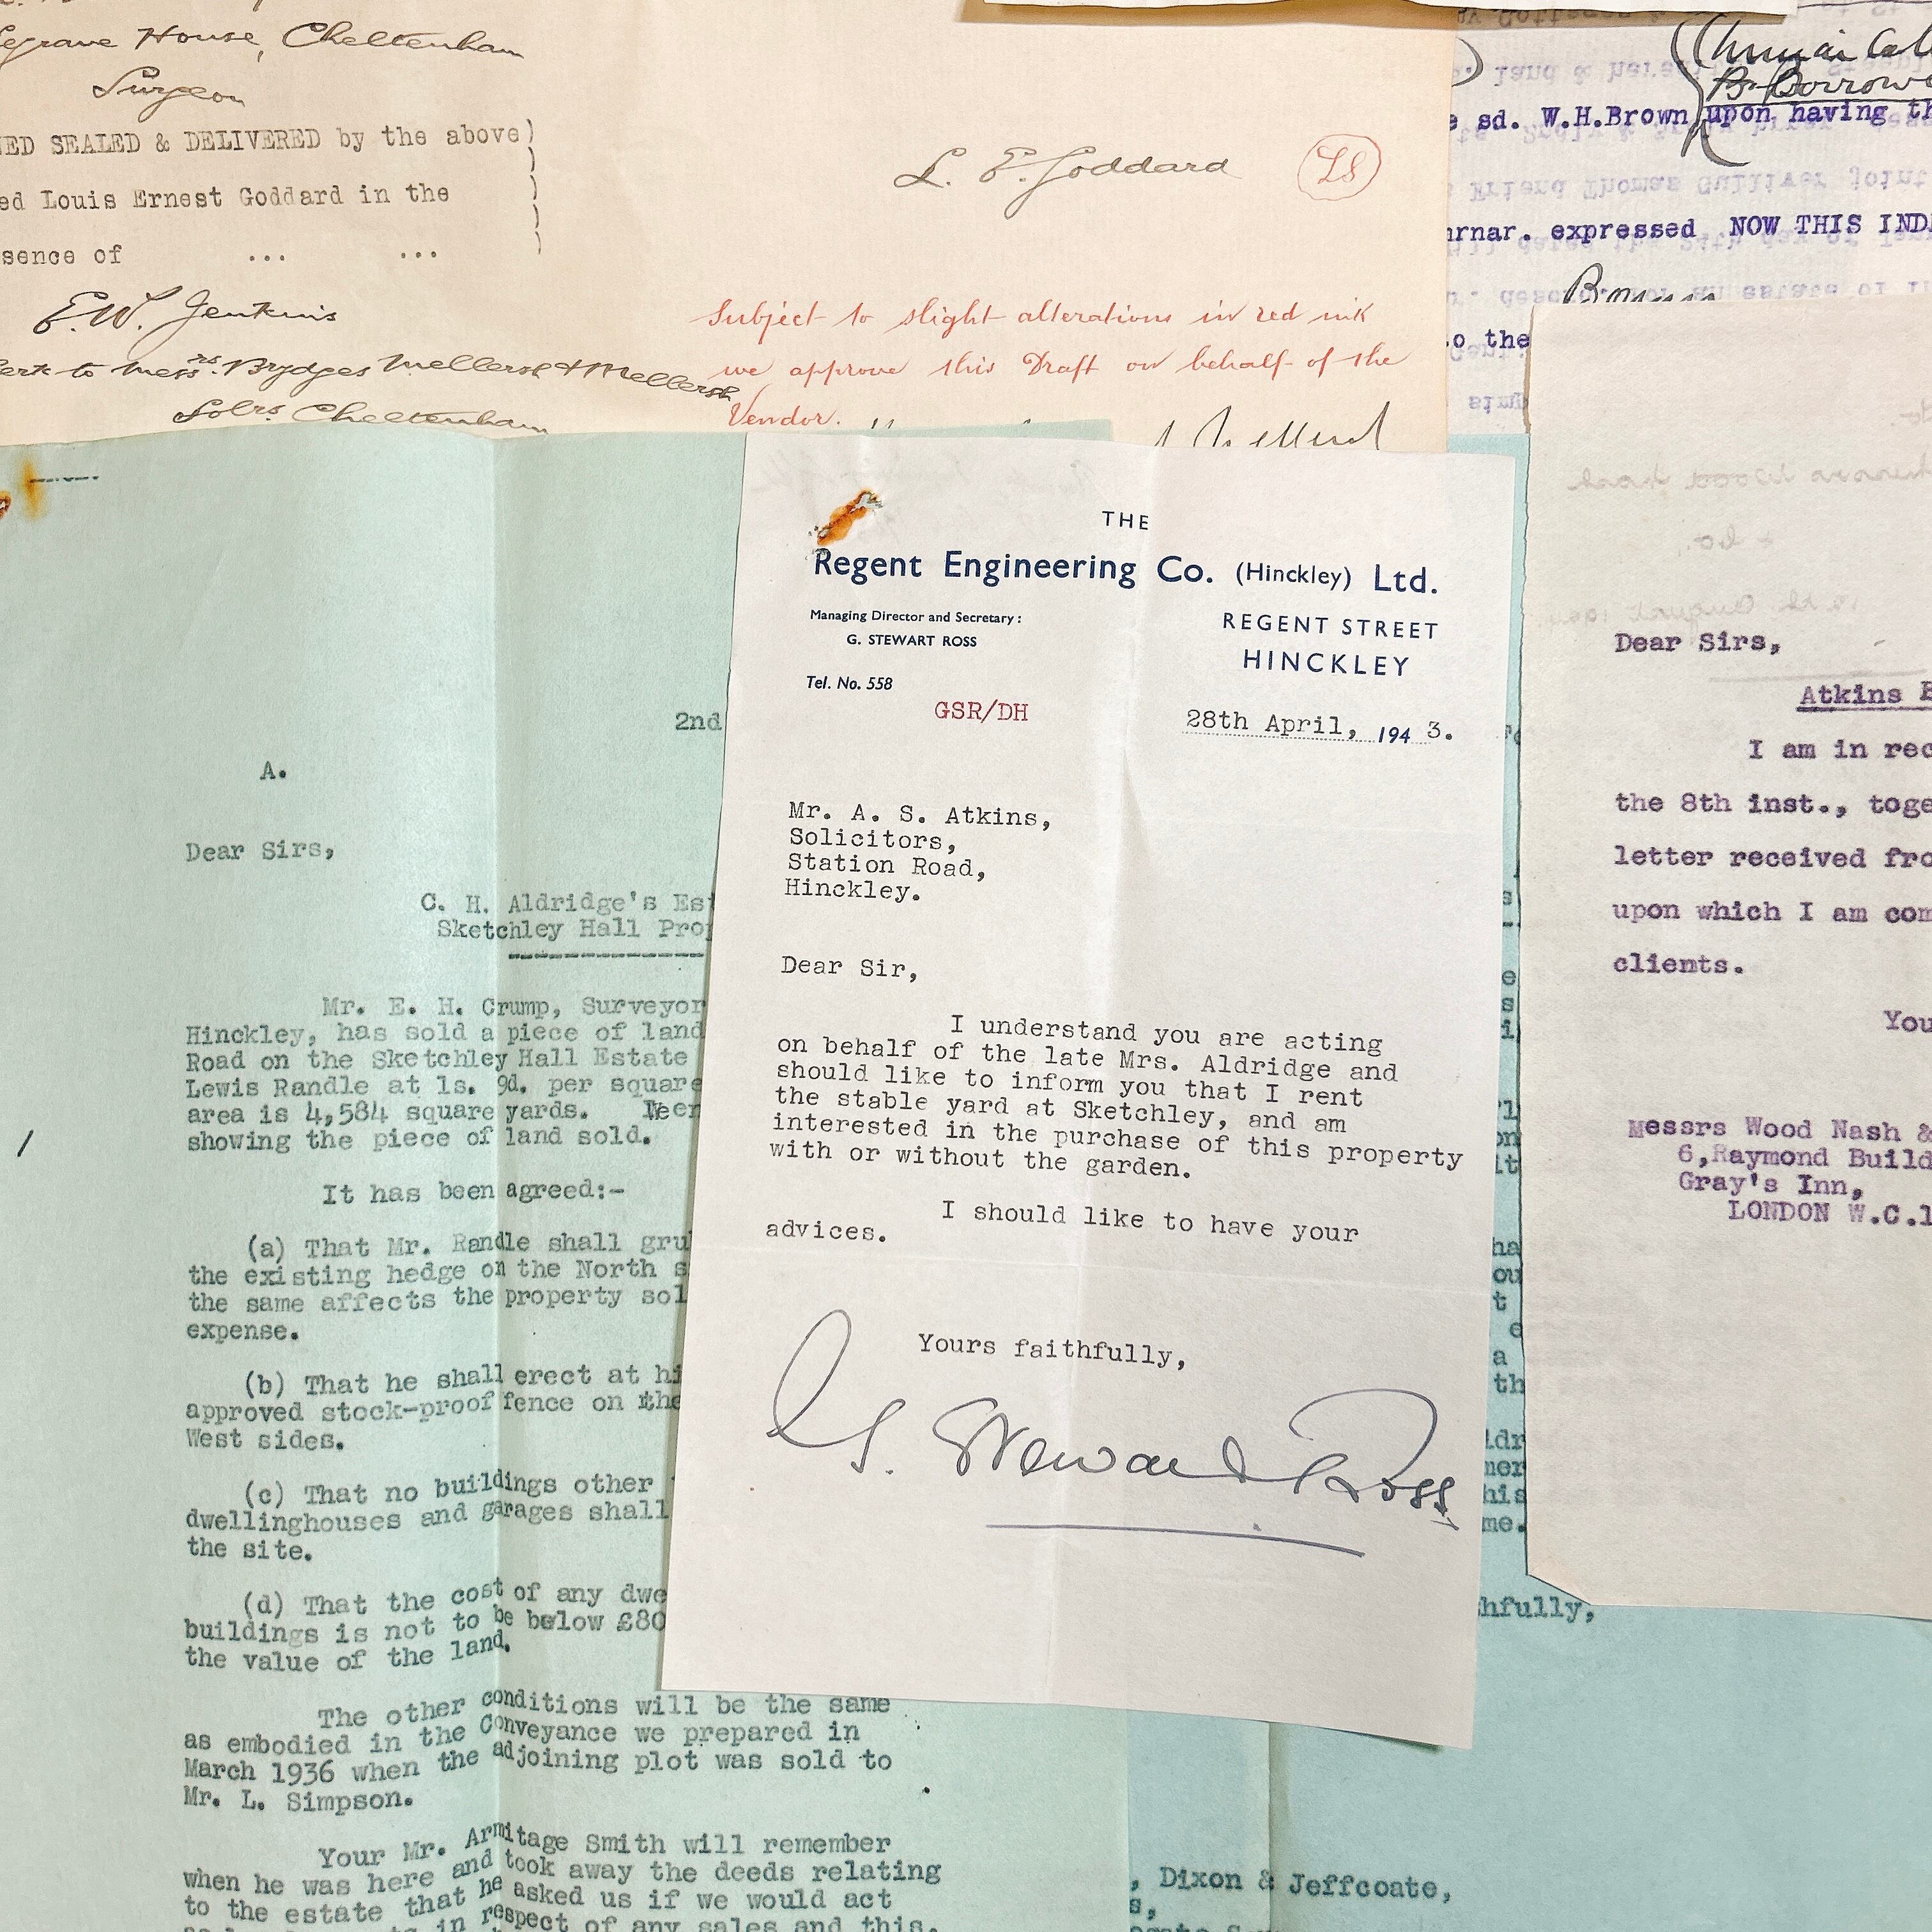 egrave House, Cheltenham
Surgeon
NED SEALED & DELIVERED by the above)
ed Louis Ernest Goddard in the
sence of ... ...
E.W. Jenkins
erk to Messrs. Brydges Mellersh & Mellersh
Solrs Cheltenham
L. E. Goddard
LS
Subject to slight alterations in red ink
we approve this Draft on behalf of the
Vendor.
B. Borrow
e sd. W.H.Brown upon having th
rnar. expressed NOW THIS IND
to the
THE
Regent Engineering Co. (Hinckley) Ltd.
Managing Director and Secretary:
G. STEWART ROSS
Tel. No. 558
REGENT STREET
HINCKLEY
GSR/DH
28th April, 1943.
Mr. A. S. Atkins,
Solicitors,
Station Road,
Hinckley.
Dear Sir,
I understand you are acting
on behalf of the late Mrs. Aldridge and
should like to inform you that I rent
the stable yard at Sketchley, and am
interested in the purchase of this property
with or without the garden.
I should like to have your
advices.
Yours faithfully,
G. Stewart Ross
2nd
A.
Dear Sirs,
C. H. Aldridge's Est
Sketchley Hall Prop
Mr. E. H. Crump, Surveyor
Hinckley, has sold a piece of land
Road on the Sketchley Hall Estate
Lewis Randle at 1s. 9d. per square
area is 4,584 square yards.
showing the piece of land sold.
It has been agreed:-
(a) That Mr. Randle shall gru
the existing hedge on the North s
the same affects the property sol
expense.
(b) That he shall erect at hi
approved stock-proof fence on the
West sides.
(c) That no buildings other
dwellinghouses and garages shall
the site.
(d) That the cost of any dwe
buildings is not to be below £80
the value of the land.
The other conditions will be the same
as embodied in the Conveyance we prepared in
March 1936 when the adjoining plot was sold to
Mr. L. Simpson.
Your Mr. Armitage Smith will remember
when he was here and took away the deeds relating
to the estate that he asked us if we would act
in respect of any sales and this.
hfully,
, Dixon & Jeffcoate,
Dear Sirs,
Atkins
I am in rec
the 8th inst., toge
letter received fro
upon which I am com
clients.
You
Messrs Wood Nash &
6,Raymond Build
Gray's Inn,
LONDON W.C.1